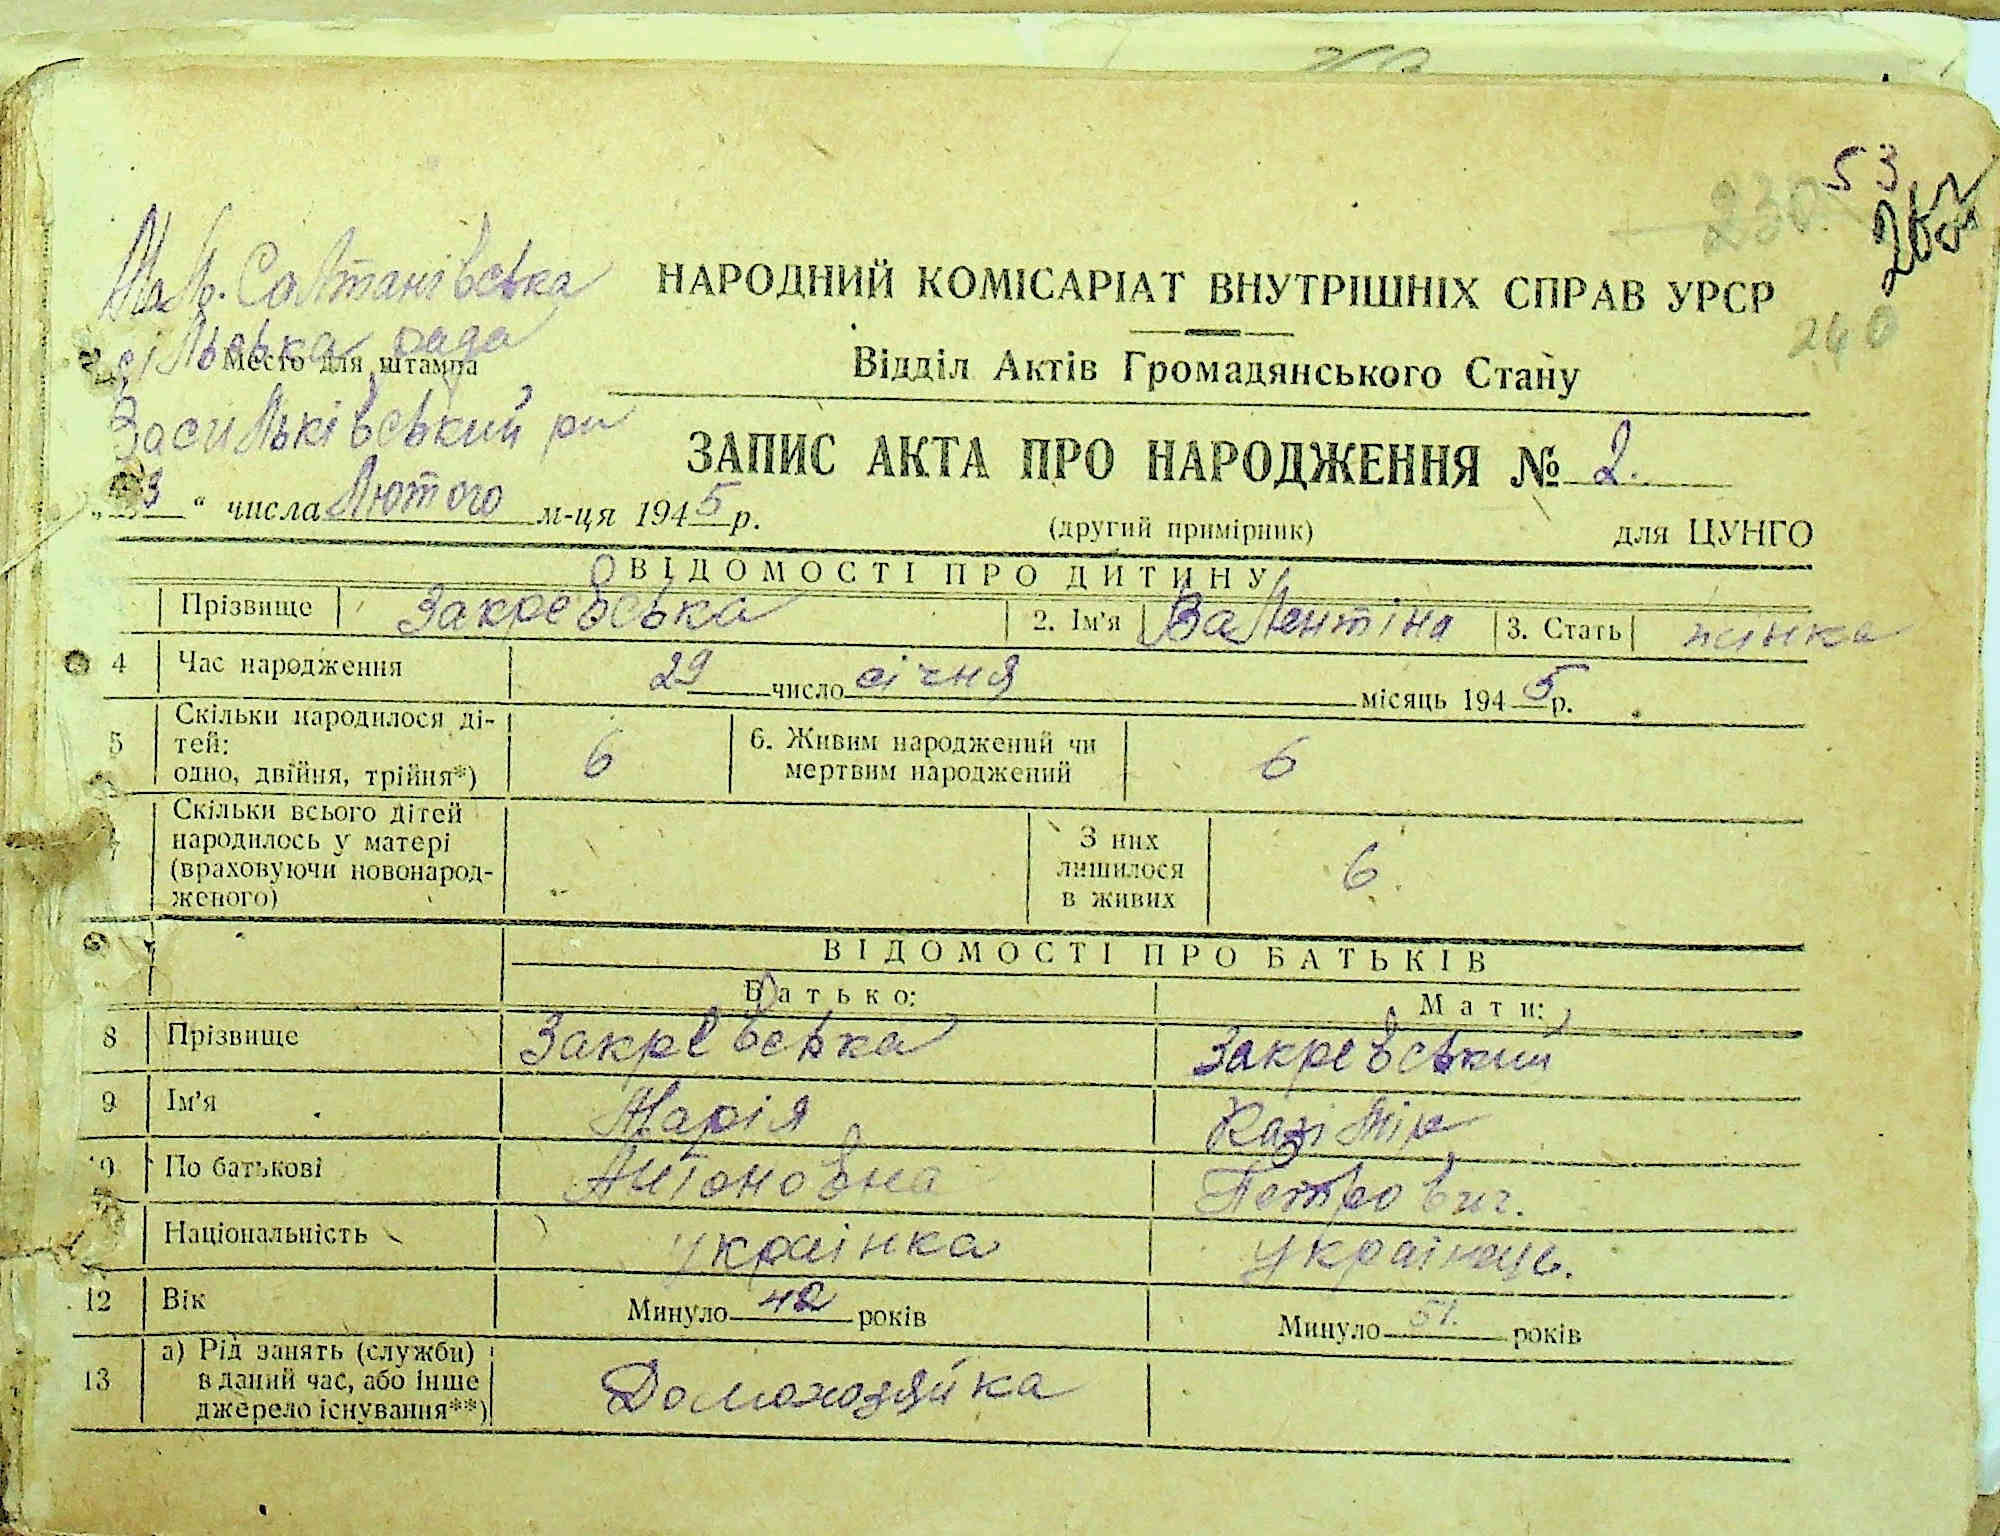 53
230.
262
240
Мал. Солтанівська
сільська рада
Место для штампа
Васильківський рн
НАРОДНИЙ КОМІСАРІАТ ВНУТРІШНІХ СПРАВ УРСР
Відділ Актів Громадянського Стану
ЗАПИС АКТА ПРО НАРОДЖЕННЯ № 2.
„ 3 “ числа Лютого м-ця 1945 р.
(другий примірник) для ЦУНГО
ВІДОМОСТІ ПРО ДИТИНУ
Прізвище Закревська 2. Ім'я Валентіна 3. Стать жінка
4 Час народження 29 число січня місяць 1945 р.
5 Скільки народилося ді-
тей:
одно, двійня, трійня*) 6 6. Живим народжений чи
мертвим народжений 6
7 Скільки всього дітей
народилось у матері
(враховуючи новонарод-
женого)
З них
лишилося
в живих 6.
ВІДОМОСТІ ПРО БАТЬКІВ
Батько: Мати:
8 Прізвище Закревська Закревський
9 Ім'я Марія Казімір
10 По батькові Антоновна Петрович.
Національність українка Українець.
12 Вік Минуло 42 років Минуло 51. років
13 а) Рід занять (служби)
в даний час, або інше
джерело існування**) Домохозяйка